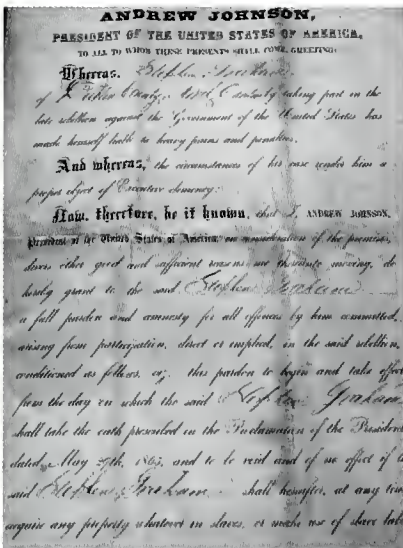 ANDREW JOHNSON,
PRESIDENT OF THE UNITED STATES OF AMERICA,
TO ALL TO WHOM THESE PRESENTS SHALL COME, GREETING:
Whereas, Stephen Graham
of Duplin County, North Carolina, by taking part in the
late rebellion against the Government of the United States has
made himself liable to heavy pains and penalties.
And whereas, the circumstances of his case render him a
proper object of Executive clemency:
Now, therefore, be it known, that I, ANDREW JOHNSON,
President of the United States of America, in consideration of the premises,
divers other good and sufficient reasons me thereunto moving, do
hereby grant to the said Stephen Graham
a full pardon and amnesty for all offences by him committed,
arising from participation, direct or implied, in the said rebellion,
conditioned as follows, viz: this pardon to begin and take effect
from the day on which the said Stephen Graham
shall take the oath prescribed in the Proclamation of the President
dated May 29th, 1865, and to be void and of no effect if
said Stephen Graham shall hereafter, at any time
acquire any property whatever in slaves, or make use of slave labor